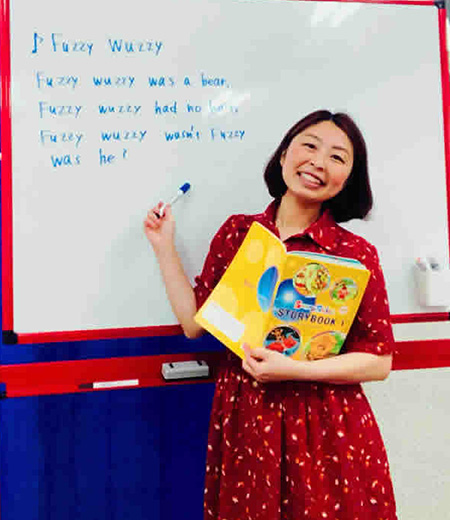 ♪ Fuzzy Wuzzy
Fuzzy wuzzy was a bear.
Fuzzy wuzzy had no hair.
Fuzzy wuzzy wasn't Fuzzy
was he?
STORYBOOK 1